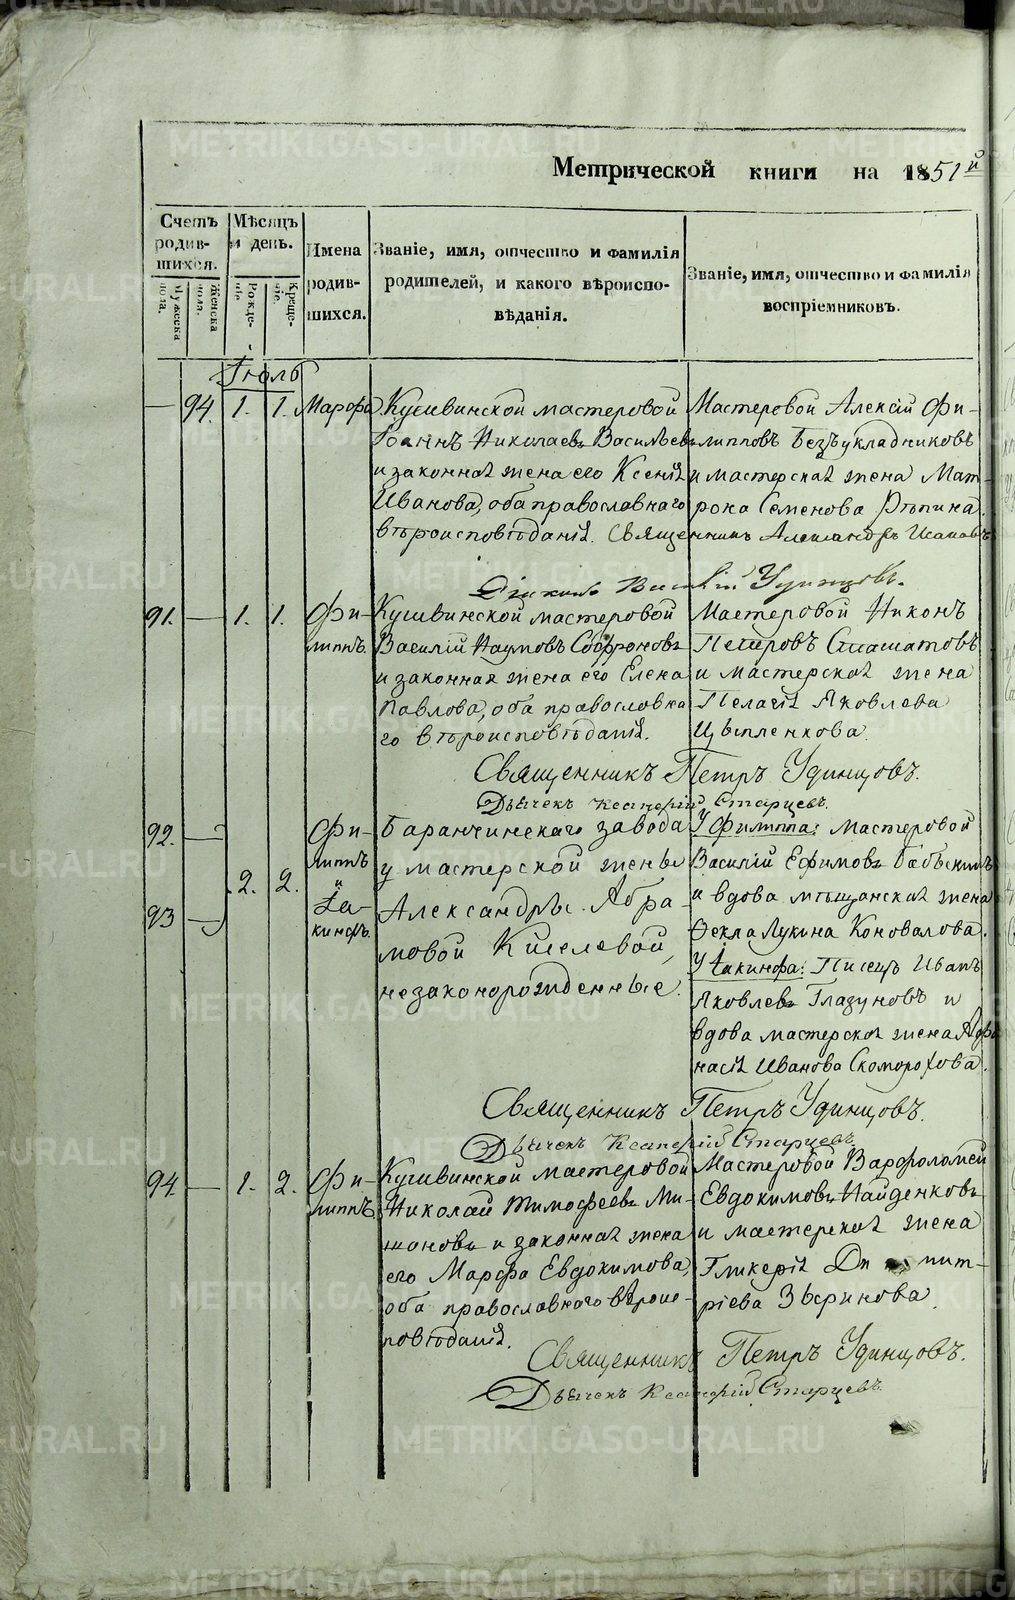 Метрической книги на 1851й
Счетъ родившихся.
Мужеска пола.
Женска пола.
Мѣсяцъ и день.
Рожденіе.
Крещеніе.
Имена родившихся.
Званіе, имя, отчество и фамилія
родителей, и какого вѣроиспо-
вѣданія.
Званіе, имя, отчество и фамилія
воспріемниковъ.
Іюль
— 94. 1. 1. Марфа
Кушвинской мастеровой
Іоаннъ Николаевъ Васильевъ
и законная жена его Ксенія
Иванова, оба православнаго
вѣроисповѣданія.
Мастеровой Алексій Фи-
липповъ Безъукладниковъ
и мастерская жена Мат-
рона Семенова Рѣпина.
Священникъ Александръ
Удинцовъ.
91. — 1. 1. Фи-
липпъ.
Кушвинской мастеровой
Василій Наумовъ Софроновъ
и законная жена его Елена
Павлова, оба православна
го вѣроисповѣданія.
Мастеровой Никонъ
Петровъ
и мастерская жена
Пелагія Яковлева
Цыпленкова.
Священникъ Петръ Удинцовъ.
Дьячекъ Старцевъ.
92. —
93 —
2. 2.
Фи-
липпъ
и
Іа-
кинфъ.
Баранчинскаго завода
у мастерской жены
Александры Абра-
мовой Киселевой,
незаконорожденные.
У Филиппа: Мастеровой
Василій Ефимовъ
и вдова мѣщанская жена
Ѳекла Лукина Коновалова.
У Іакинфа: Писецъ Иванъ
Яковлевъ Глазуновъ и
вдова мастерская жена Афа
насія Иванова Скоморохова.
Священникъ Петръ Удинцовъ.
Дьячекъ Старцевъ.
94. — 1. 2. Фи-
липпъ
Кушвинской мастеровой
Николай Тимофеевъ Ми-
шоновъ и законная жена
его Марфа Евдокимова,
оба православнаго вѣроис-
повѣданія.
Мастеровой Варфоломей
Евдокимовъ Найденковъ
и мастерская жена
Гликерія Ди мит-
ріева Звѣринова.
Священникъ Петръ Удинцовъ.
Дьячекъ Старцевъ.
METRIKI.GASO-URAL.RU